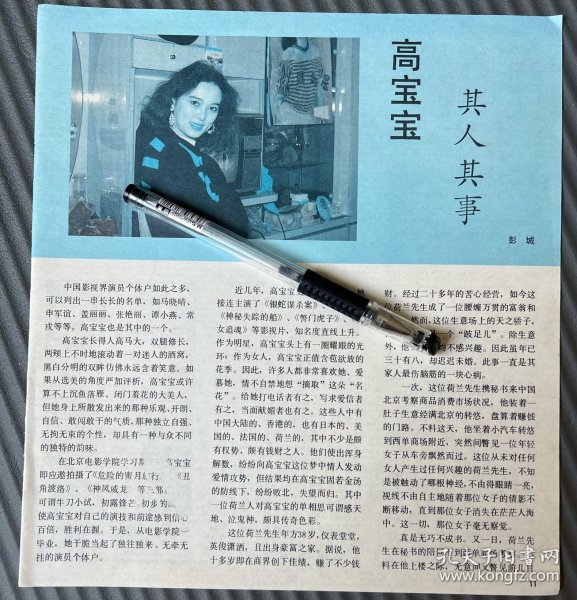 高宝宝
其人其事
彭城
中国影视界演员个体户如此之多，
可以列出一串长长的名单，如马晓晴、
申军谊、盖丽丽、张艳丽、谭小燕、常
戎等等。高宝宝也是其中的一个。
高宝宝长得人高马大，双腿修长，
两颊上不时地滚动着一对迷人的酒窝，
黑白分明的双眸仿佛永远含着笑意。如
果从选美的角度严加评析，高宝宝或许
算不上沉鱼落雁、闭门羞花的大美人，
但她身上所散发出来的那种乐观、开朗、
自信、敢闯敢干的气质，那种独立自强、
无拘无束的个性，却具有一种与众不同
的独特的韵味。
在北京电影学院学习 高宝宝
即应邀拍摄了《危险的蜜月 《丑
角波洛》、《神风威龙》等三部
可谓牛刀小试，初露锋芒。初步的
使高宝宝对自己的演技和前途感到信心
百倍，胜利在握。于是，从电影学院一
毕业，她干脆当起了独往独来、无牵无
挂的演员个体户。
近几年，高宝宝
接连主演了《银蛇谋杀案》
《神秘失踪的船》、《警门虎子》、
女追魂》等影视片，知名度直线上升。
作为明星，高宝宝头上有一圈耀眼的光
环；作为女人，高宝宝正值含苞欲放的
花季。因此，许多人都非常喜欢她、爱
慕她，情不自禁地想“摘取”这朵“名
花”。给她打电话者有之，写求爱信者
有之，当面献媚者也有之。这些人中有
中国大陆的、香港的，也有日本的、美
国的、法国的、荷兰的，其中不少是颇
有权势、颇有钱财之人。他们使出浑身
解数，纷纷向高宝宝这位梦中情人发动
爱情攻势，但结果均在高宝宝固若金汤
的防线下，纷纷败北，失望而归。其中
一位荷兰人对高宝宝的单相思可谓感天
地、泣鬼神，颇具传奇色彩。
这位荷兰先生年方38岁，仪表堂堂，
英俊潇洒，且出身豪富之家。据说，他
十多岁即在商界创下佳绩，赚了不少钱
财。经过二十多年的苦心经营，如今这
位荷兰先生成了一位腰缠万贯的富翁和
然而，这位生意场上的天之骄子，
个“跛足儿”。除生意
外，他 不感兴趣。因此虽年已
三十有八，却迟迟未婚。此事一直是其
家人最伤脑筋的一块心病。
一次，这位荷兰先生携秘书来中国
北京考察商品消费市场状况，他装着一
肚子生意经满北京的转悠，盘算着赚钱
的门路。不料这天，他坐着小汽车转悠
到西单商场附近，突然间瞥见一位年轻
女子从车旁飘然而过。这位从未对任何
女人产生过任何兴趣的荷兰先生，不知
是被触动了哪根神经，不由得眼睛一亮，
视线不由自主地随着那位女子的倩影不
断移动，直到那位女子消失在茫茫人海
中。这一切，那位女子毫无察觉。
真是无巧不成书。又一日，荷兰先
生在秘书的陪同下到
料在他上楼之际，无意间又瞥见前几日
11